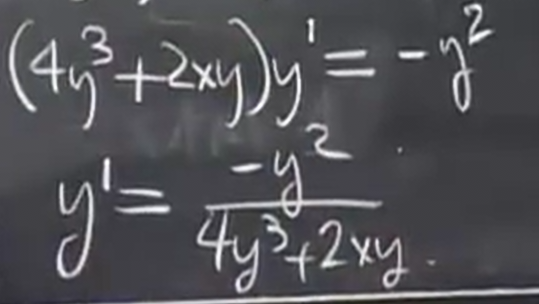 (4y³+2xy)y' = -y²
y' = -y² / 4y³+2xy.